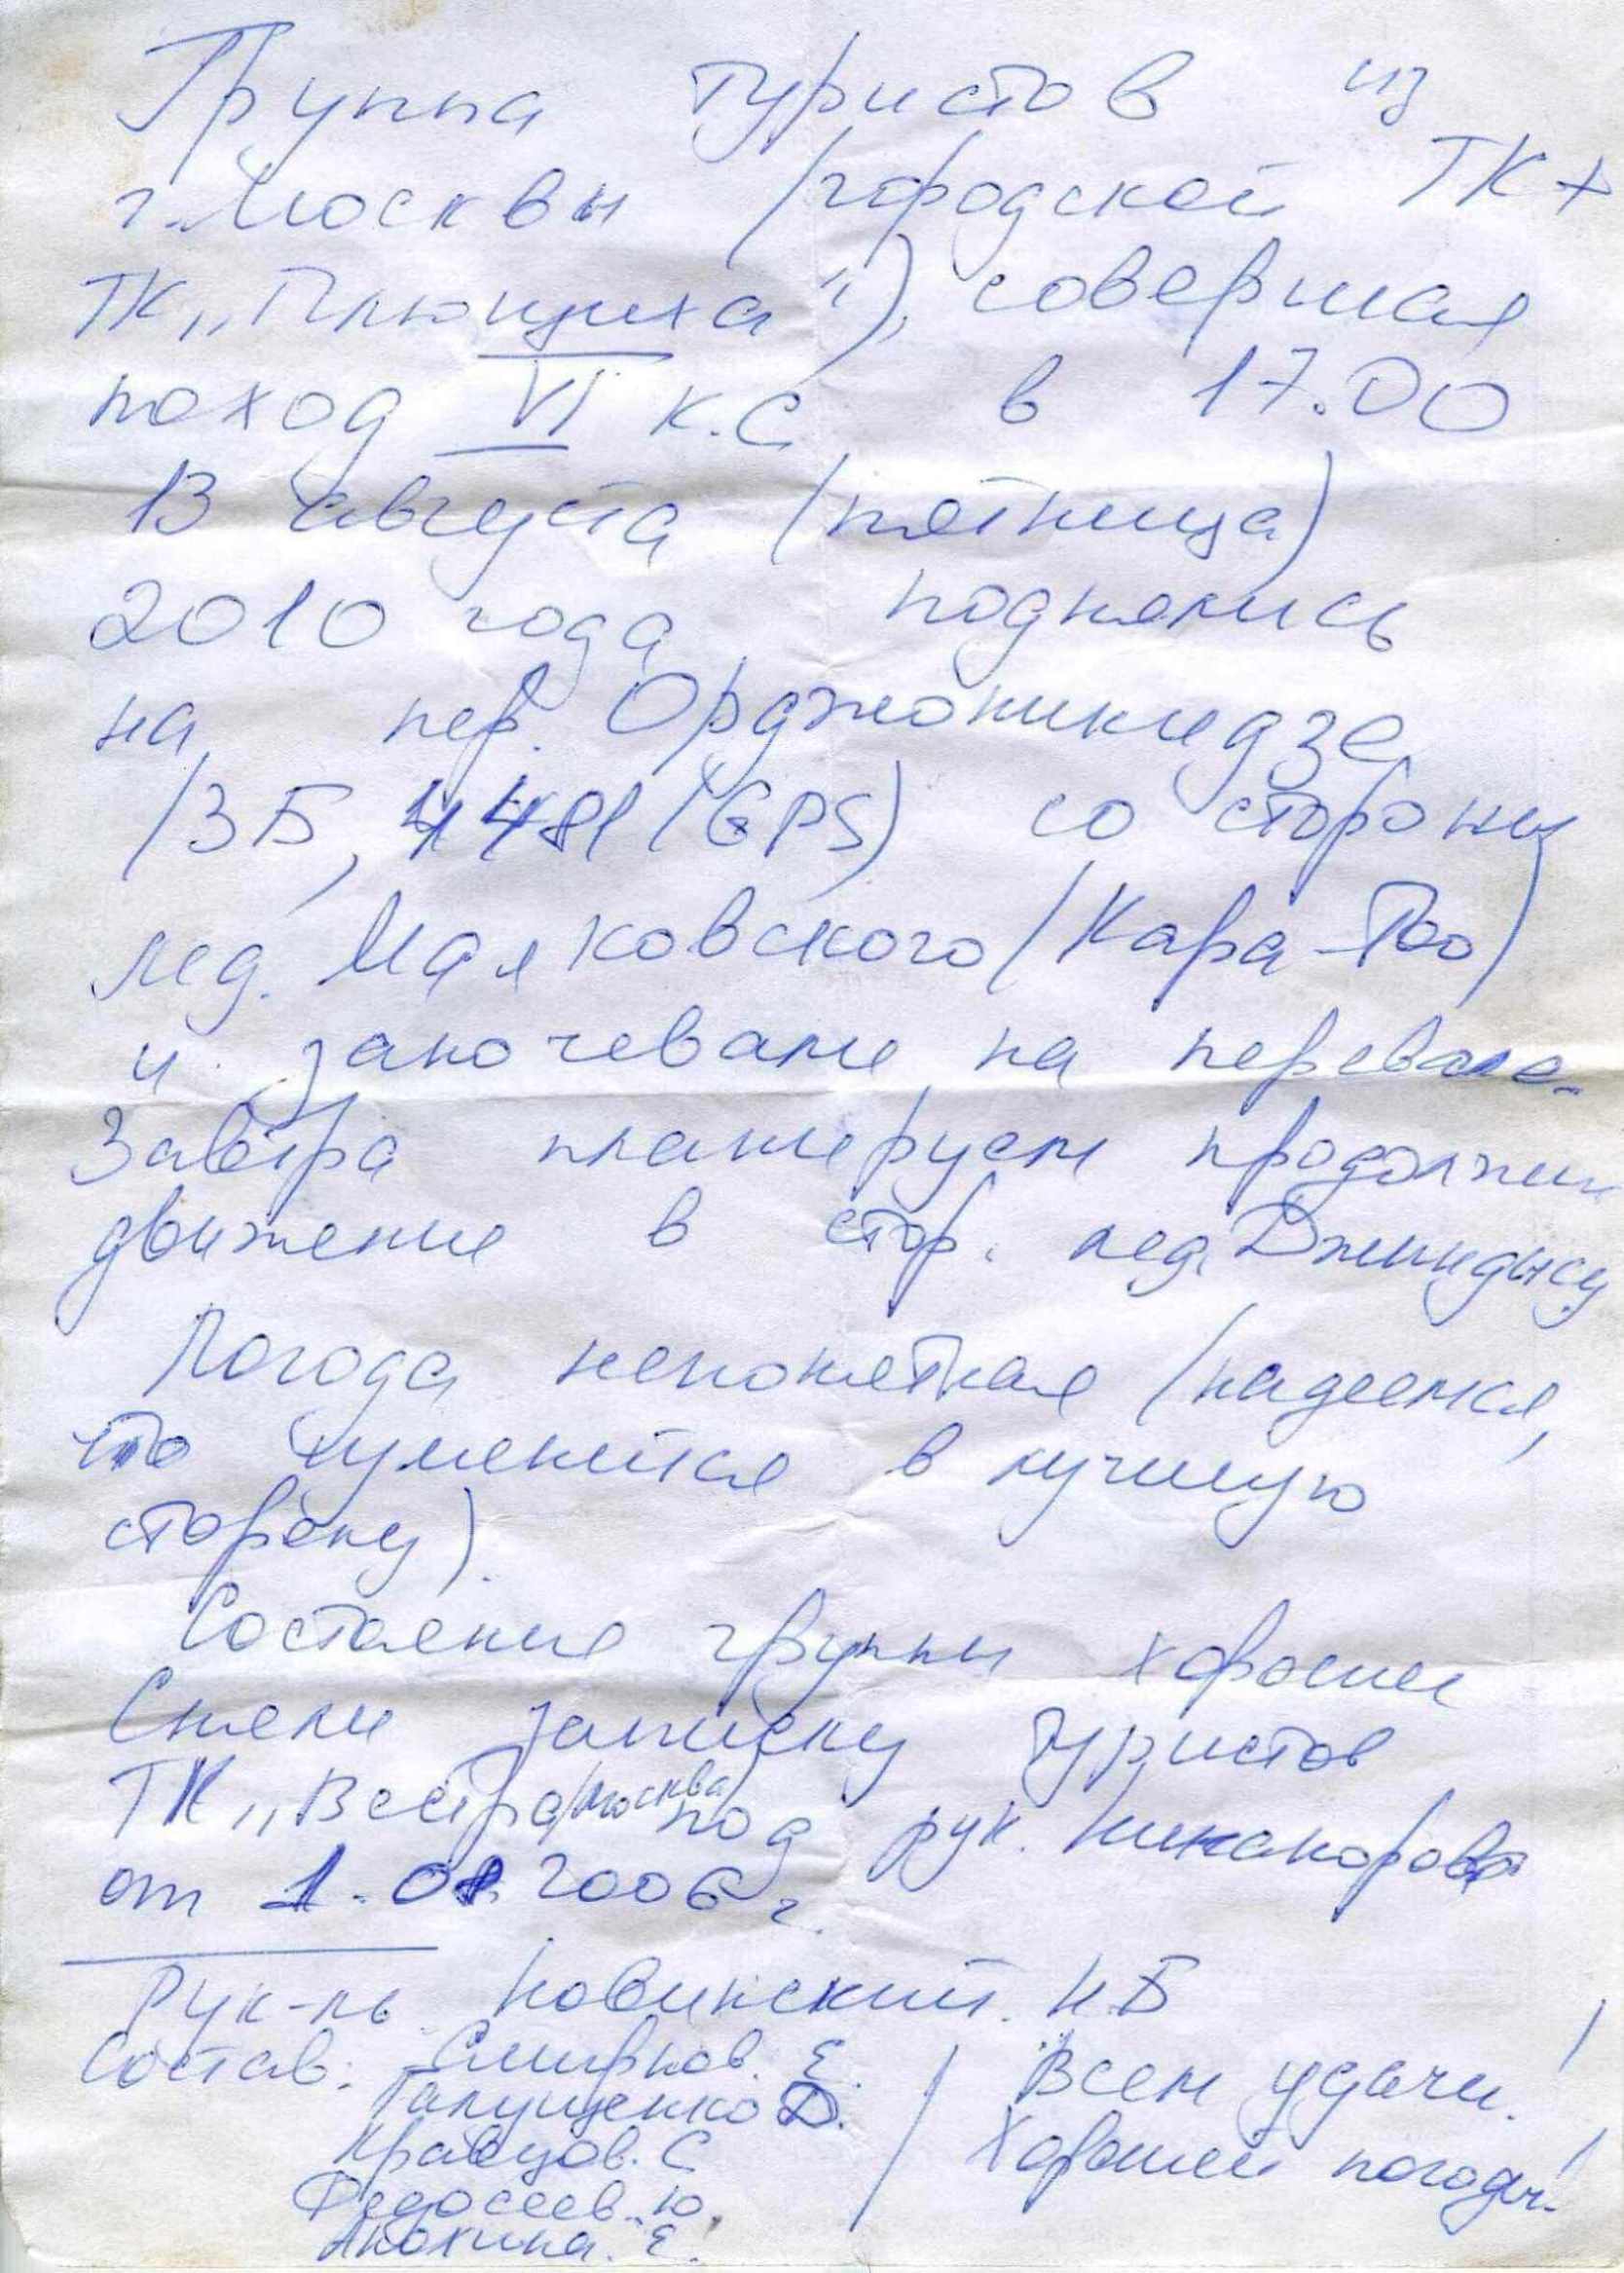 Группа туристов из
г. Москвы (городской ТК +
ТК „Плющиха"), совершая
поход VI к.с. в 17.00
13 августа (пятница)
2010 года поднялись
на пер. Орджоникидзе
(3Б, 4481 (GPS) со стороны
лед. Маяковского (Кара-Тоо)
и заночевали на перевале.
Завтра планируем продолжить
движение в стор. лед. Джиндысу
Погода непонятная (надеемся,
что изменится в лучшую
сторону).
Состояние группы хорошее
Сняли записку туристов
ТК „Вестра (Москва) под рук. Никанорова
от 1.08.2006 г.
Рук-ль Новинский. И.Б
Состав: Смирнов. Е.
Галущенко Д. Всем удачи!
Кравцов. С Хорошей погоды!
Федосеев. Ю.
Анохина. Е.